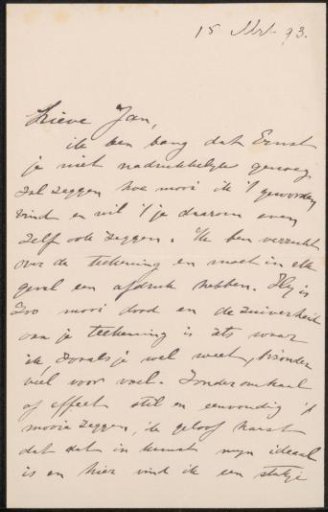 15 Mrt. 93.
Lieve Jan,
ik ben bang dat Ernst
je niet nadrukkelijk genoeg
zal zeggen hoe mooi ik 't geworden
vind en wil 't je daarom even
zelf ook zeggen. Ik ben verrukt
over de teekening en moet in elk
geval een afdruk hebben. Hij is
zoo mooi dood en de zuiverheid
van je teekening is iets waar
ik, zooals je wel weet, bizonder
veel voor voel. Zonder omhaal
of effect stil en eenvoudig 't
mooie zeggen, ik geloof haast
dat dat in kunst mijn ideaal
is en hier vind ik een stukje